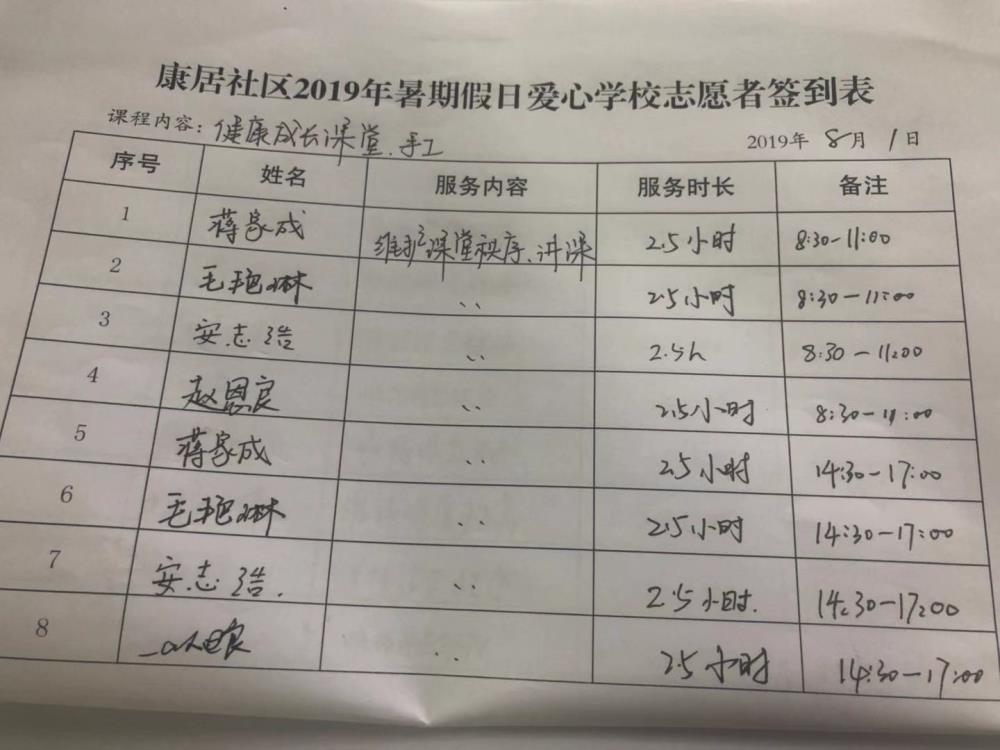 康居社区2019年暑期假日爱心学校志愿者签到表
课程内容：健康成长课堂、手工 2019年 8月 1日
序号 姓名 服务内容 服务时长 备注
1 蒋家成 维护课堂秩序、讲课 2.5小时 8:30-11:00
2 毛艳琳 、、 2.5小时 8:30-11:00
3 安志浩 、、 2.5h 8:30-11:00
4 赵恩良 、、 2.5小时 8:30-11:00
5 蒋家成 、、 2.5小时 14:30-17:00
6 毛艳琳 、、 2.5小时 14:30-17:00
7 安志浩. 、、 2.5小时. 14:30-17:00
8 、、 2.5小时 14:30-17:00